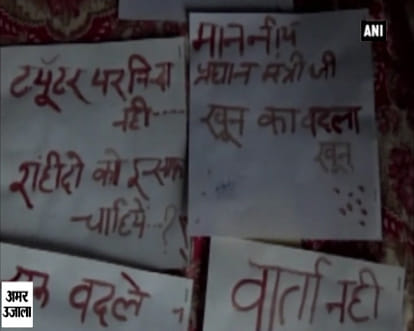 ट्यूटर पर निंदा
नही....
शहीदो को इन्साफ
चाहिये..?
माननीय
प्रधान मंत्री जी
खून का बदला
खून
बदले
वार्ता नही
ANI
अमर
उजाला